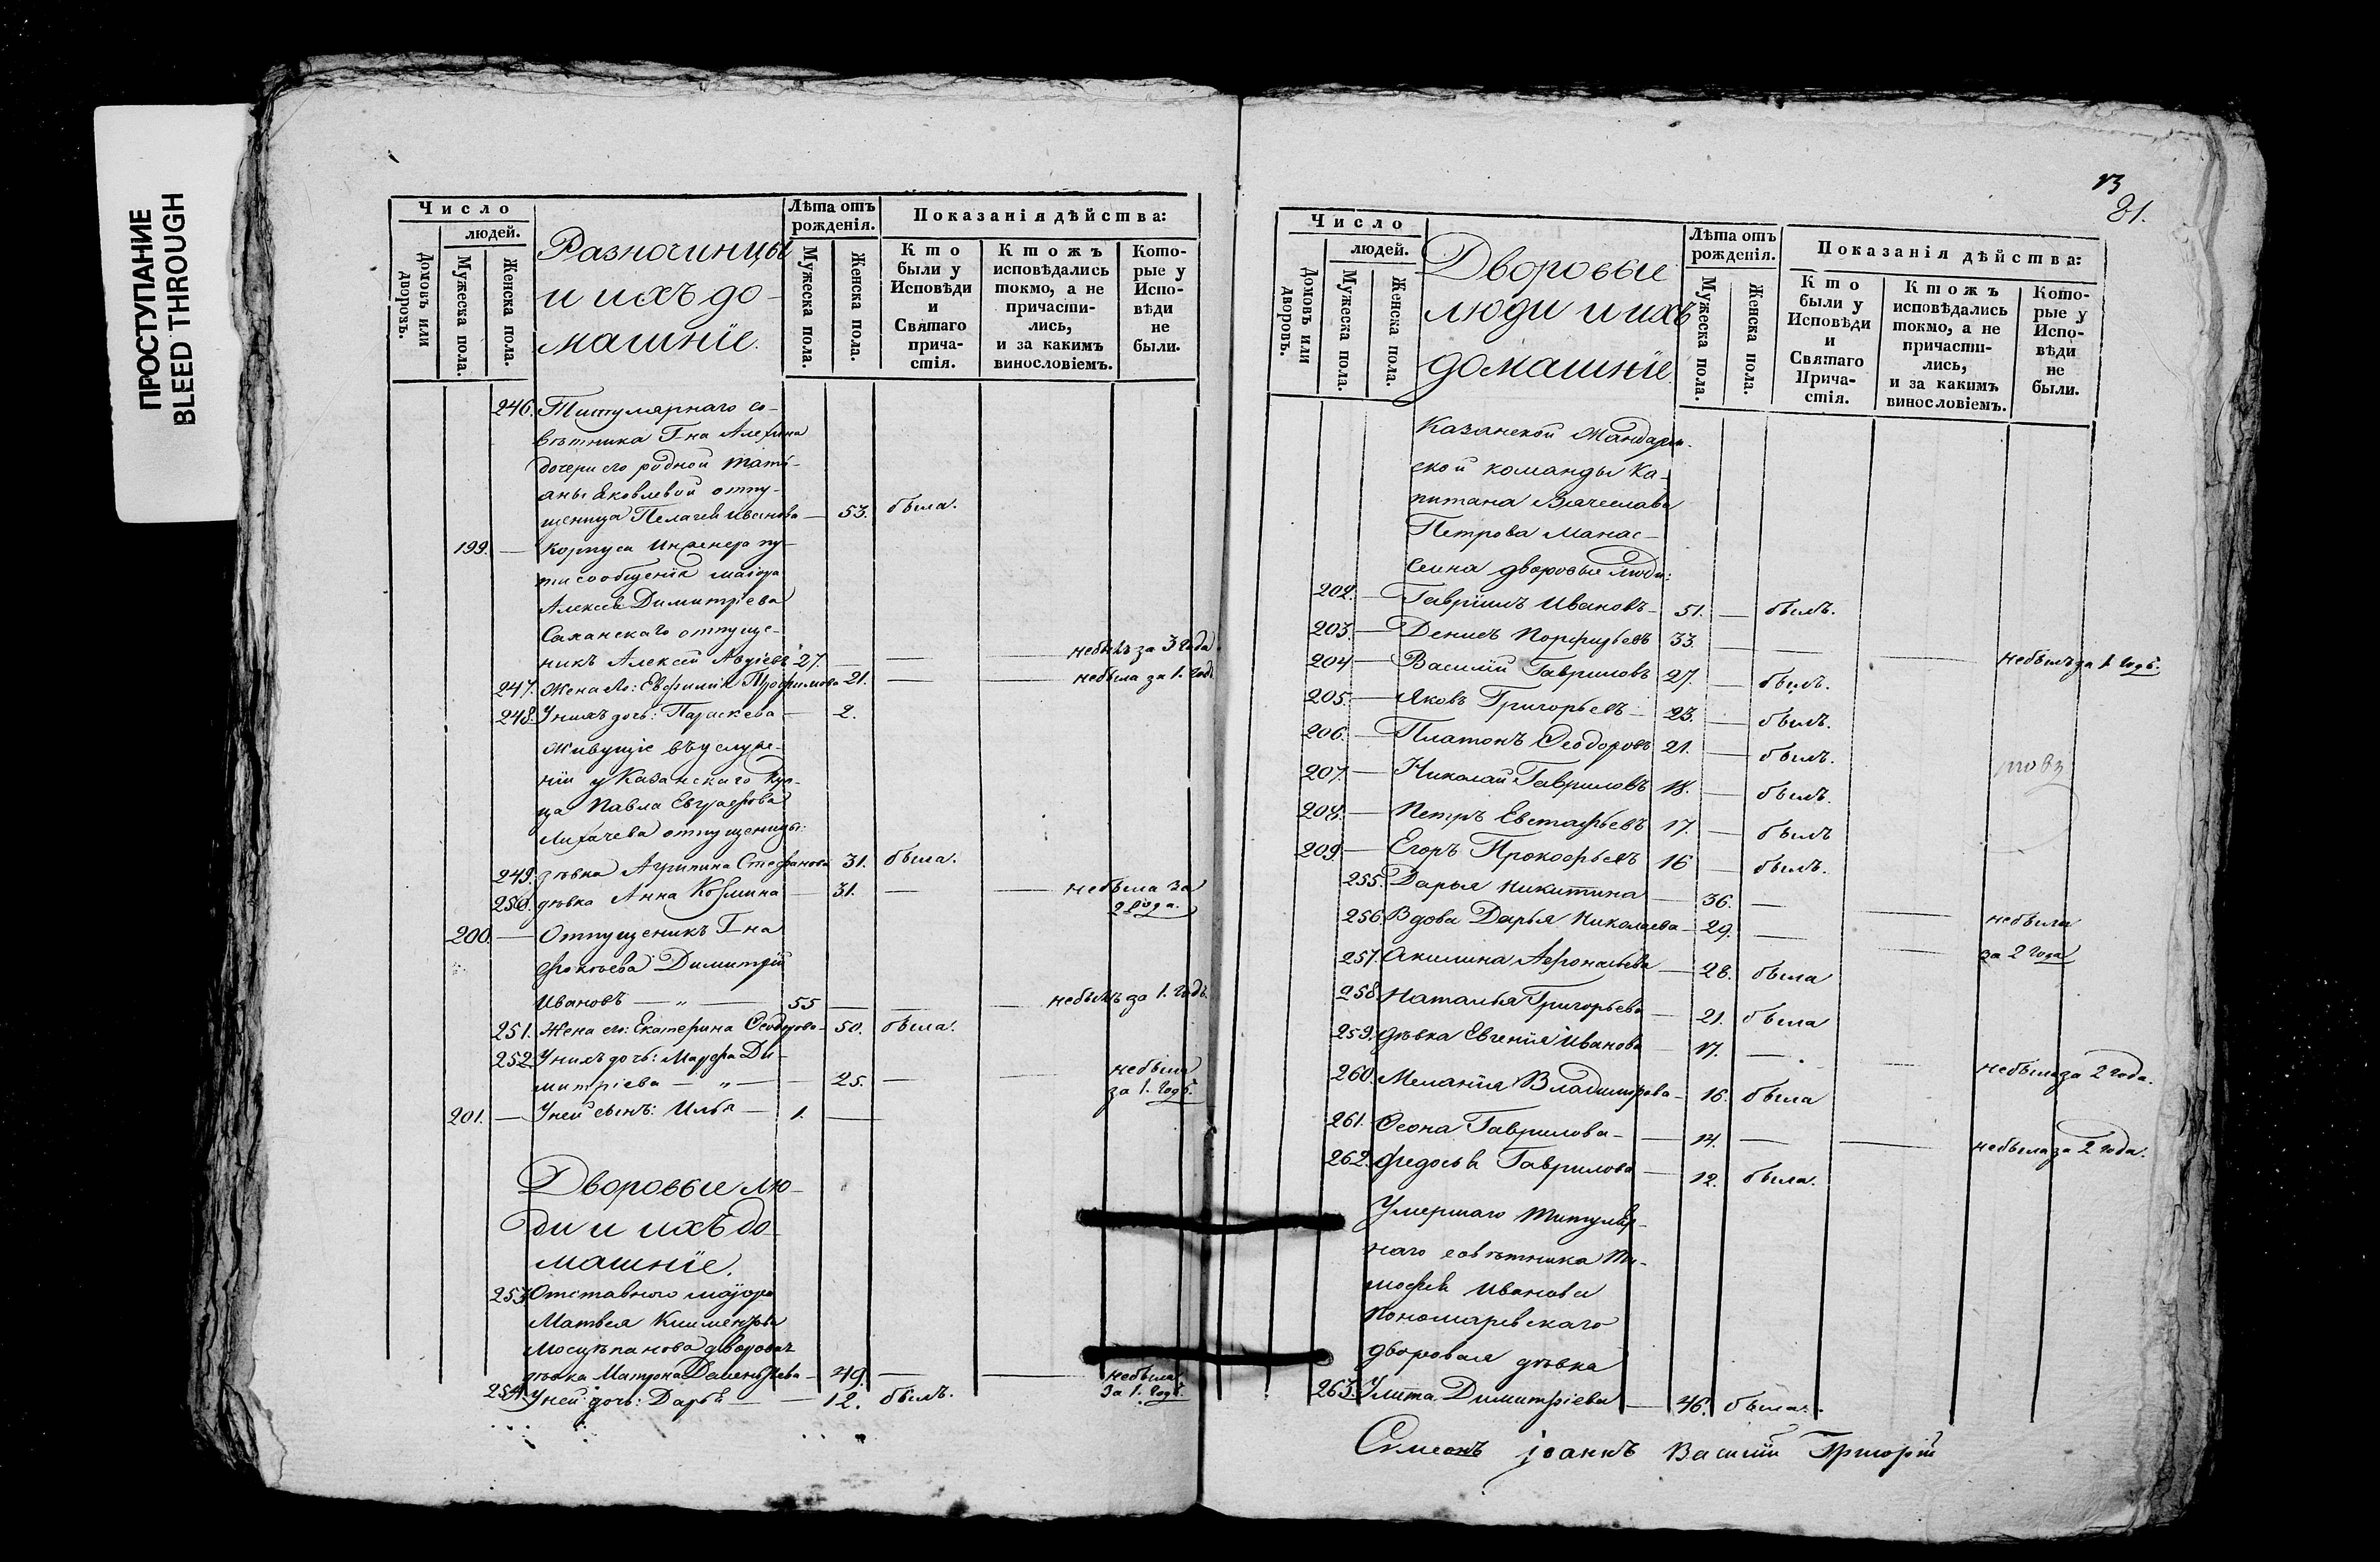 ПРОСТУПАНИЕ
BLEED THROUGH
Число
людей.
Домовъ или дворовъ.
Мужеска пола.
Женска пола.
Разночинцы
и ихъ до-
машніе.
Лѣта отъ
рожденія.
Мужеска пола.
Женска пола.
Показанія дѣйства:
Кто
были у
Исповѣди
и
Святаго
прича-
стія.
Ктожъ
исповѣдались
токмо, а не
причасти-
лись,
и за какимъ
винословіемъ.
Кото-
рые у
Испо-
вѣди
не
были.
246. Титулярнаго со-
вѣтника Г-на Алехина
дочери его родной Тати-
аны Яковлевой отпу-
щеница Пелагея Иванова — 53. была.
199. — Корпуса Инженера пу-
ти сообщенія маіора
Алексѣя Димитріева
отпуще-
никъ Алексѣй Авдіевъ 27. — — — небылъ за 3 года.
247. Жена его: Евфимія Трофимова 21. — — небыла за 1. годъ.
248. У нихъ дочь: Параскева — 2.
Живущіе въ услуже-
ніи у Казанскаго Куп-
ца Павла Евграфова
Лихачева отпущеницы:
249. дѣвка Агрипина Стефанова 31. была.
250. дѣвка Анна Козмина — 31. — — небыла за
2 года.
200. — Отпущеникъ Г-на
Димитрій
Ивановъ — „ — 55 — — — небылъ за 1. годъ.
251. Жена его: Екатерина Ѳеодорова — 50. была.
252. У нихъ дочь: Марфа Ди-
митріева — „ — — 25. — небыла
за 1. годъ.
201. — У ней сынъ: Илья — 1. —
Дворовые лю-
ди и ихъ до-
машніе.
253. Отставнаго маіора
Матвея
Мосцѣпанова дворовая
дѣвка Матрона Дементьева — 49. — — небыла
за 1. годъ.
254. У ней дочь: Дарья — — 12. былъ.
13
81.
Число
людей.
Домовъ или дворовъ.
Мужеска пола.
Женска пола.
Дворовые
люди и ихъ
домашніе.
Лѣта отъ
рожденія.
Мужеска пола.
Женска пола.
Показанія дѣйства:
Кто
были у
Исповѣди
и
Святаго
Прича-
стія.
Ктожъ
исповѣдались
токмо, а не
причасти-
лись,
и за какимъ
винословіемъ.
Кото-
рые у
Испо-
вѣди
не
были.
Казанской Жандарм-
ской команды Ка-
питана Вячеслава
Петрова Манас-
сеина дворовые люди:
202. — Гавріилъ Ивановъ — 51. — былъ.
203. — Денисъ Порфирьевъ 33. — — — небылъ за 1. годъ.
204 — Василій Гавриловъ 27. — былъ.
205. — Яковъ Григорьевъ — 23. — былъ.
206. — Платонъ Ѳеодоровъ 21. — былъ.
207. — Николай Гавриловъ 18. — былъ.
208. — Петръ Евстафьевъ 17. — былъ
209. — Егоръ Прокофьевъ 16 — былъ.
255. Дарья Никитина — 36. — — небыла
256. Вдова Дарья Николаева — 29. — — за 2 года
257. Акилина Афонасьева — 28. была
258. Наталья Григорьева — 21. была
259. дѣвка Евгенія Иванова — 17. — — небыла за 2 года.
260. Меланія Владимирова — 16. была
261. Ѳеона Гаврилова — — 14. — — небыла за 2 года.
262. Федосья Гаврилова — 12. была.
Умершаго титуляр-
наго совѣтника Ти-
мофея Иванова
Пономаревскаго
дворовая дѣвка
263. Улита Димитріева — 46. была.
Симеонъ Іоаннъ Василій Григорій